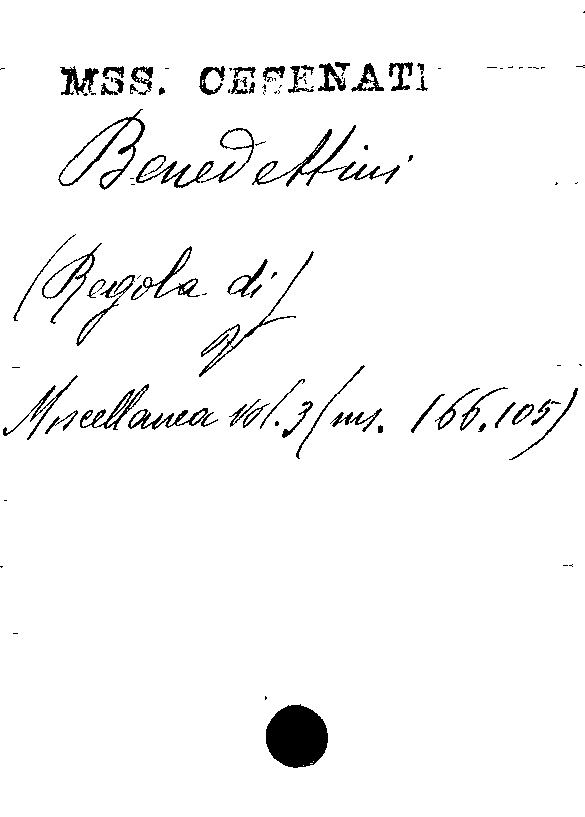 MSS. CESENATI
Benedettini
(Regola di)
Miscellanea vol. 3 (ms. 166.105)